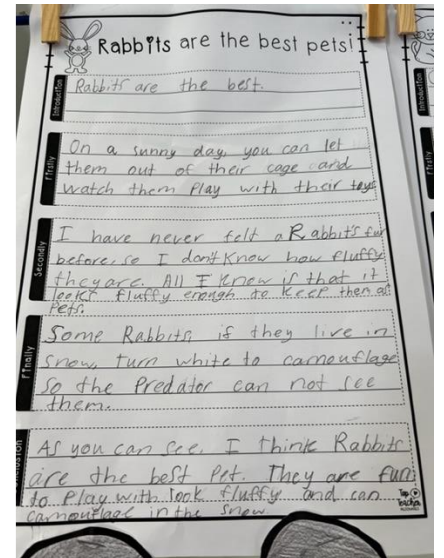 Rabbits are the best pets!
Introduction
Rabbits are the best.
Firstly
On a sunny day, you can let
them out of their cage and
watch them Play with their toys
Secondly
I have never felt a Rabbits fur
before, so I don't know how fluffy
they are. All I know is that it
looks fluffy enough to keep them as
Pets.
Finally
Some Rabbits, if they live in
snow, turn white to camouflage
so the Predator can not see
them.
As you can see. I think Rabbits
are the best Pet. They are fun
to Play with look fluffy and can
camouflage in the snow.
Top
Teacher